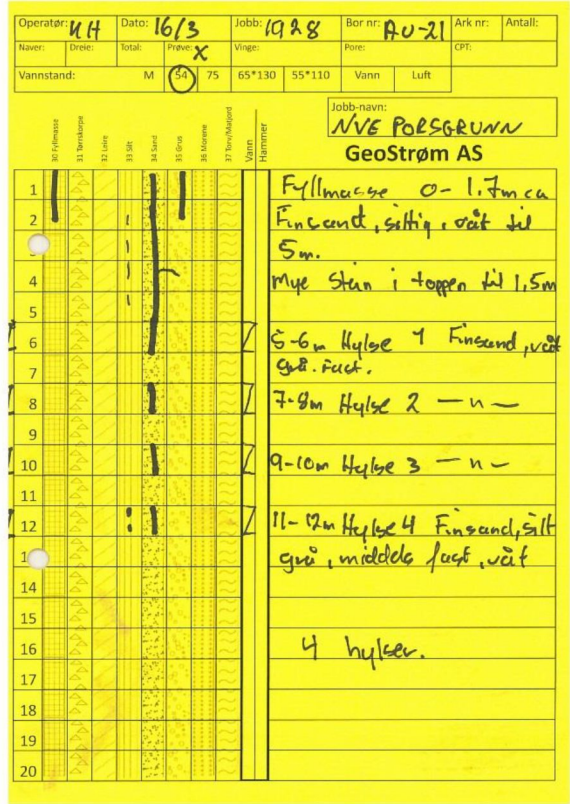 Operatør: KH Dato: 16/3 Jobb: 1928 Bor nr: AU-21 Ark nr: Antall:
Naver: Dreie: Total: Prøve: X Vinge: Pore: CPT:
Vannstand: M 54 75 65*130 55*110 Vann Luft
Jobb-navn:
NVE PORSGRUNN
GeoStrøm AS
30 Fyllmasse 31 Tørrskorpe 32 Leire 33 Silt 34 Sand 35 Grus 36 Morene 37 Torv/Matjord Vann Hammer
1 Fyllmasse 0-1.7m ca
2 Finsand, siltig, våt til
5m.
4 Mye Stein i toppen til 1,5m
5
6 5-6m Hylse 1 Finsand, våt
7 grå. Fast.
8 7-8m Hylse 2 —n—
9
10 9-10m Hylse 3 —n—
11
12 11-12m Hylse 4 Finsand, silt
1 grå, middels fast, våt
14
15
16 4 hylser.
17
18
19
20